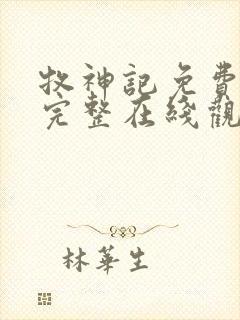 牧神記免費
完整在綫觀
林華生